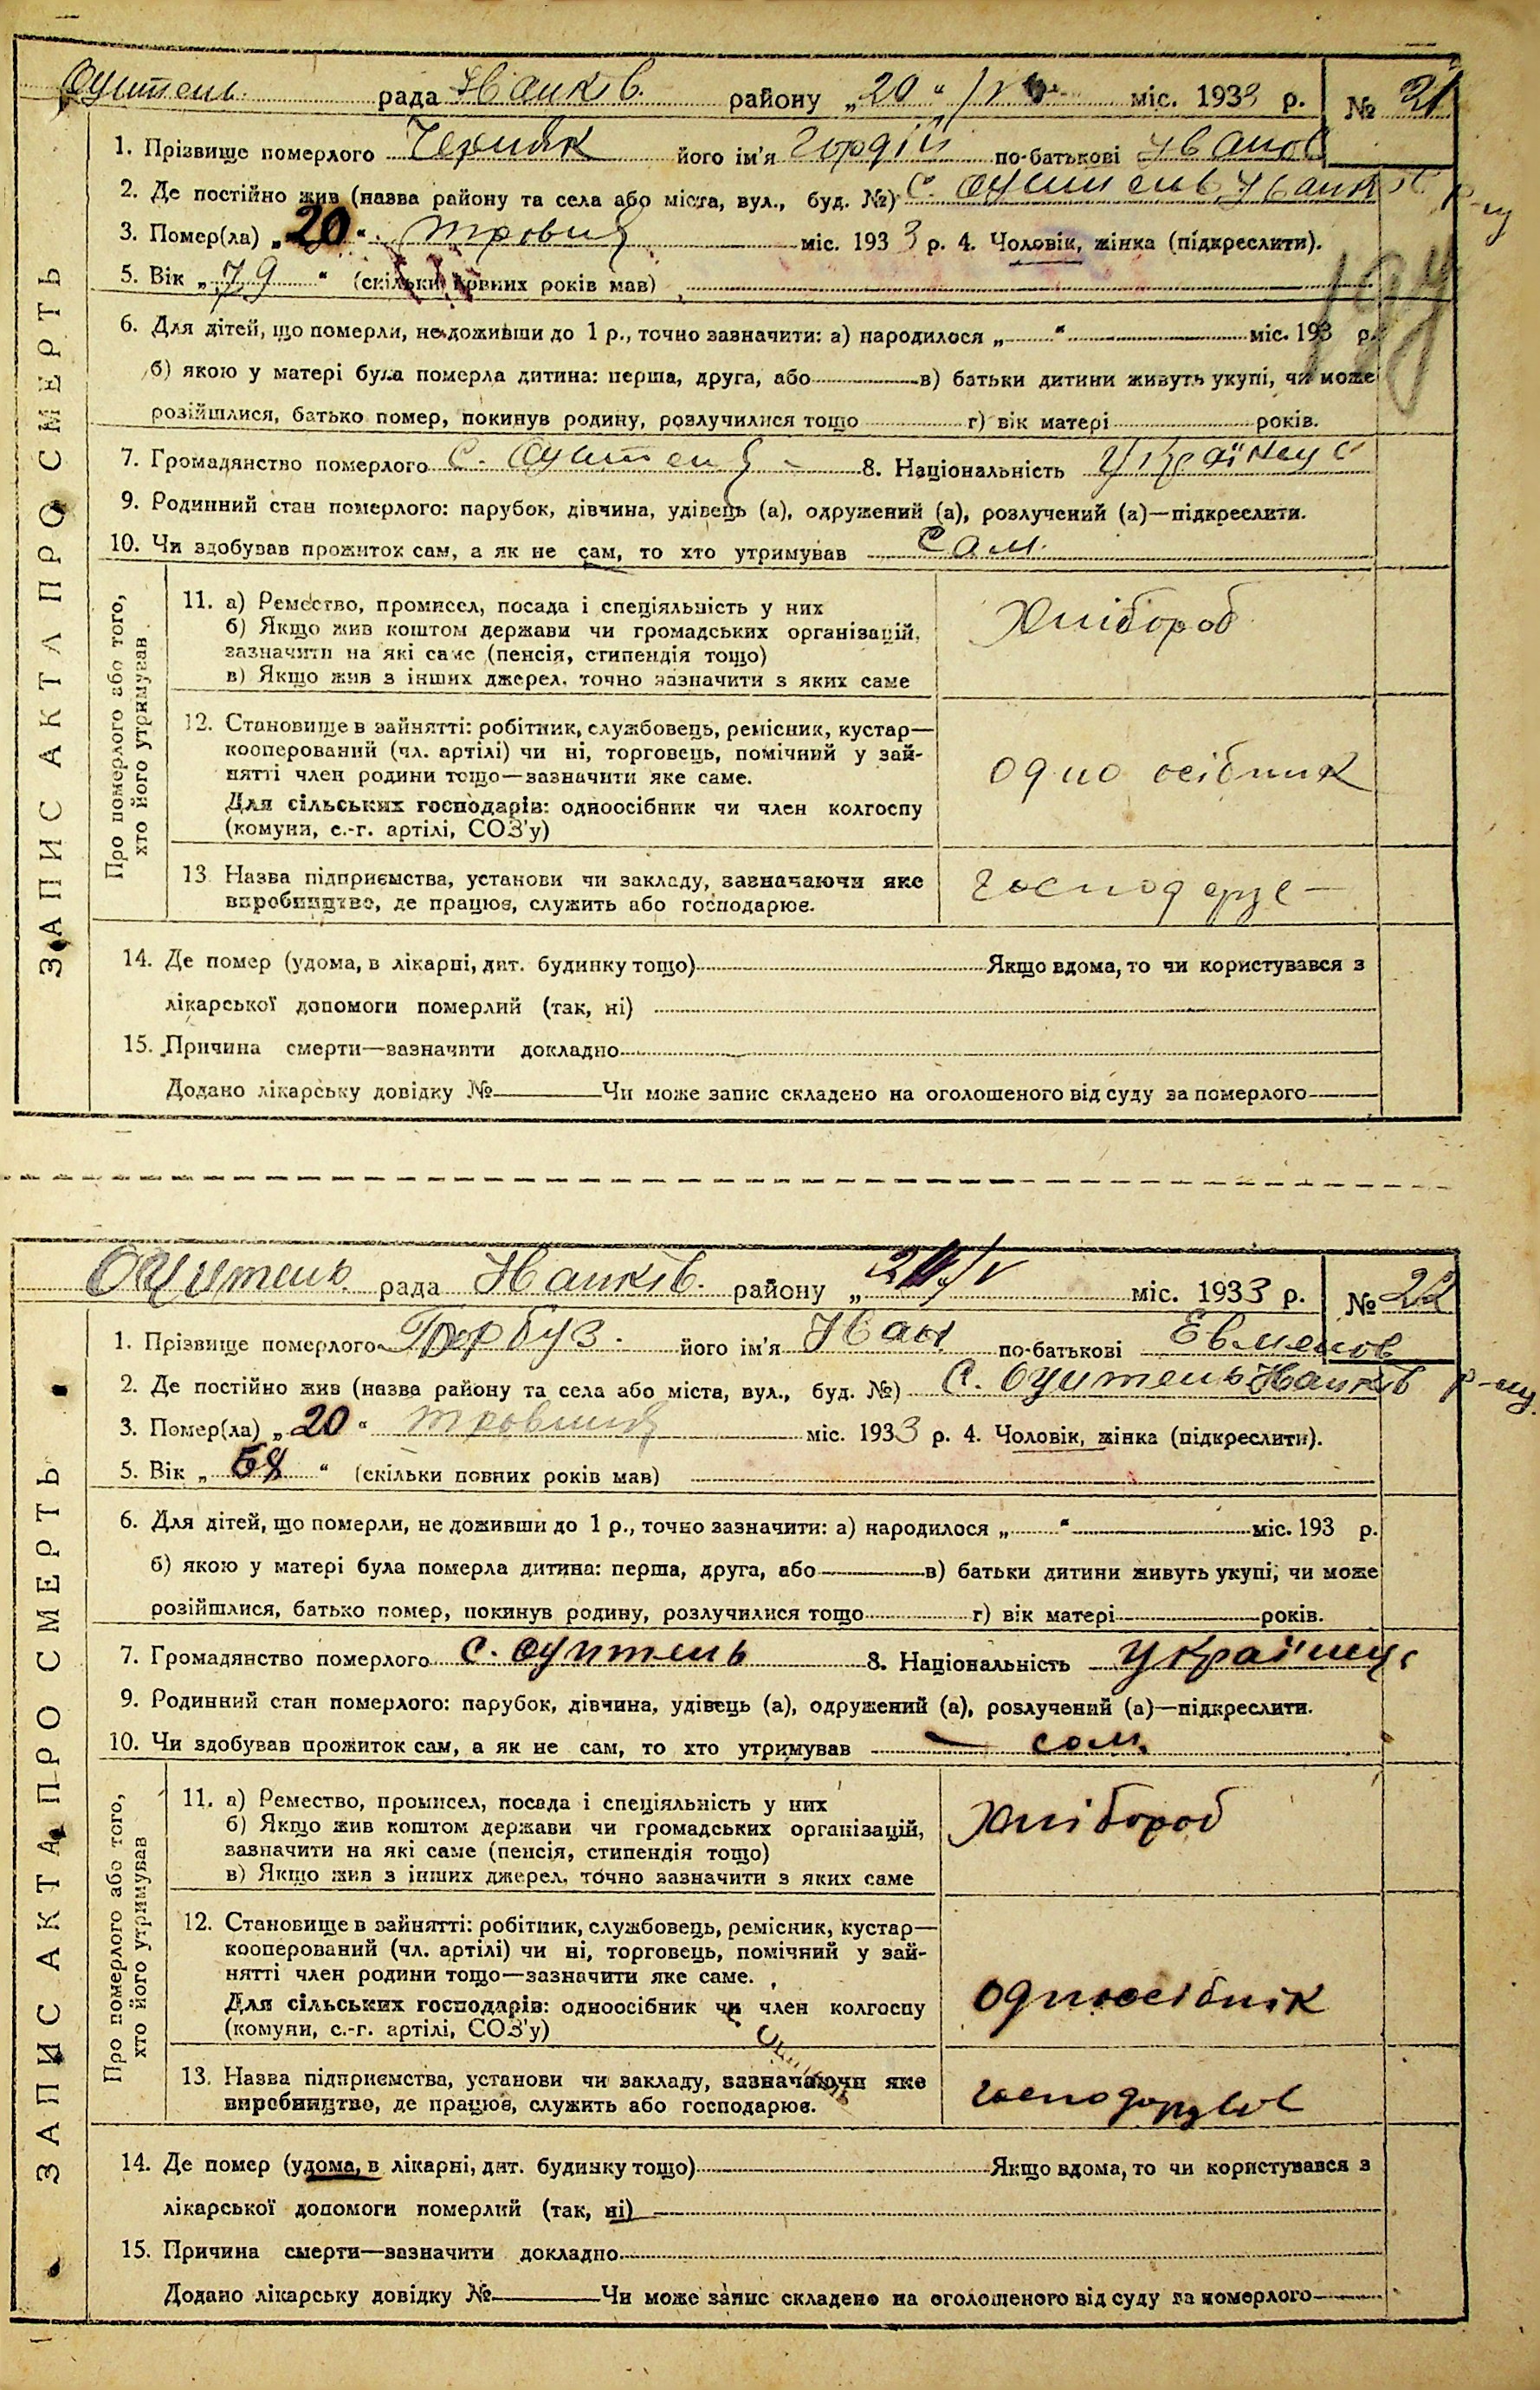 Оцитель рада Иванків. району „20“ /V міс. 1933 р. № 21
1. Прізвище померлого Черняк його ім'я Гордій по-батькові Іванов
2. Де постійно жив (назва району та села або міста, вул., буд. №) с. Оцитель Іванків р-ну
3. Помер(ла) „20“ травня міс. 1933 р. 4. Чоловік, жінка (підкреслити).
5. Вік „79“ (скільки повних років мав)
6. Для дітей, що померли, не доживши до 1 р., точно зазначити: а) народилося „ “ міс. 193 р.
б) якою у матері була померла дитина: перша, друга, або в) батьки дитини живуть укупі, чи може
розійшлися, батько помер, покинув родину, розлучилися тощо г) вік матері років.
7. Громадянство померлого с. Оцитель 8. Національність Українец
9. Родинний стан померлого: парубок, дівчина, удівець (а), одружений (а), розлучений (а)—підкреслити.
10. Чи здобував прожиток сам, а як не сам, то хто утримував сам.
ЗАПИС АКТА ПРО СМЕРТЬ
Про померлого або того,
хто його утримував
11. а) Ремество, промисел, посада і спеціяльність у них
б) Якщо жив коштом держави чи громадських організацій,
зазначити на які саме (пенсія, стипендія тощо)
в) Якщо жив з інших джерел, точно зазначити з яких саме
Хлібороб
12. Становище в зайнятті: робітник, службовець, ремісник, кустар—
кооперований (чл. артілі) чи ні, торговець, помічний у зай-
нятті член родини тощо—зазначити яке саме.
Для сільських господарів: одноосібник чи член колгоспу
(комуни, с.-г. артілі, СОЗ'у)
одноосібник
13. Назва підприємства, установи чи закладу, зазначаючи яке
виробництво, де працює, служить або господарює.
14. Де помер (удома, в лікарні, дит. будинку тощо) Якщо вдома, то чи користувався з
лікарської допомоги померлий (так, ні)
15. Причина смерти—зазначити докладно
Додано лікарську довідку № Чи може запис складено на оголошеного від суду за померлого
Оцитель рада Иванків. району „20/V міс. 1933 р. № 22
1. Прізвище померлого Гарбуз. його ім'я Іван по-батькові Евменов
2. Де постійно жив (назва району та села або міста, вул., буд. №) с. Оцитель Іванків р-ну.
3. Помер(ла) „20“ травня міс. 1933 р. 4. Чоловік, жінка (підкреслити).
5. Вік „ “ (скільки повних років мав)
6. Для дітей, що померли, не доживши до 1 р., точно зазначити: а) народилося „ “ міс. 193 р.
б) якою у матері була померла дитина: перша, друга, або в) батьки дитини живуть укупі, чи може
розійшлися, батько помер, покинув родину, розлучилися тощо г) вік матері років.
7. Громадянство померлого с. Оцитель 8. Національність Українец
9. Родинний стан померлого: парубок, дівчина, удівець (а), одружений (а), розлучений (а)—підкреслити.
10. Чи здобував прожиток сам, а як не сам, то хто утримував — сам.
ЗАПИС АКТА ПРО СМЕРТЬ
Про померлого або того,
хто його утримував
11. а) Ремество, промисел, посада і спеціяльність у них
б) Якщо жив коштом держави чи громадських організацій,
зазначити на які саме (пенсія, стипендія тощо)
в) Якщо жив з інших джерел, точно зазначити з яких саме
Хлібороб
12. Становище в зайнятті: робітник, службовець, ремісник, кустар—
кооперований (чл. артілі) чи ні, торговець, помічний у зай-
нятті член родини тощо—зазначити яке саме.
Для сільських господарів: одноосібник чи член колгоспу
(комуни, с.-г. артілі, СОЗ'у)
одноосібнік
13. Назва підприємства, установи чи закладу, зазначаючи яке
виробництво, де працює, служить або господарює.
14. Де помер (удома, в лікарні, дит. будинку тощо) Якщо вдома, то чи користувався з
лікарської допомоги померлий (так, ні)
15. Причина смерти—зазначити докладно
Додано лікарську довідку № Чи може запис складено на оголошеного від суду за померлого